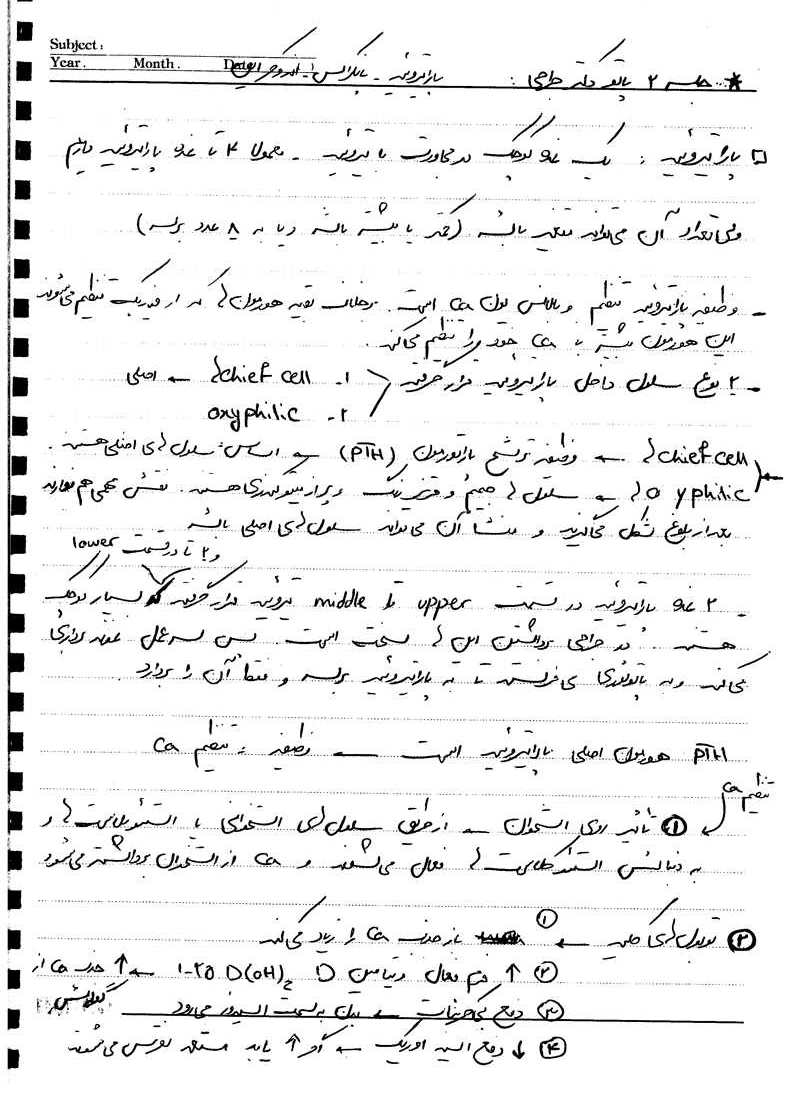 Subject:
Year. Month. Date.
* جلسه ۲ پاتو دکتر طراحی: پاراتیروئید - پانکراس
□ پاراتیروئید: یک غده کوچک در مجاورت با تیروئید - معمولا ۴ تا غده پاراتیروئید داریم
ولی تعداد آن می‌تواند متغیر باشد (کمتر یا بیشتر باشد و یا به ۸ عدد برسد)
- وظیفه پاراتیروئید تنظیم و بالانس یون Ca است. برخلاف بقیه هورمون‌ها که از هیپوفیز تنظیم می‌شوند
این هورمون بیشتر با Ca خود را تنظیم می‌کند.
- ۲ نوع سلول داخل پاراتیروئید قرار گرفته ۱- chief cell ها ← اصلی
۲- oxyphilic
chief cell ها ← وظیفه ترشح پاراتورمون (PTH) ← اساس: سلول‌های اصلی هستند.
oxyphilic ها ← سلول‌ها حجیم و قرمز رنگ و پر از میتوکندری هستند. نقش مهمی هم ندارند
بعد از بلوغ شکل می‌گیرند و منشا آن می‌تواند سلول‌های اصلی باشد
و ۲ تا در قسمت lower
- ۲ غده پاراتیروئید در قسمت upper تا middle تیروئید قرار گرفته که بسیار کوچک
هستند. در جراحی برداشتن این‌ها سخت است. پس سرعمل نمونه برداری
می‌کنند و به پاتولوژی می‌فرستند تا به پاراتیروئید برسد و فقط آن را بردارد.
PTH هورمون اصلی پاراتیروئید است ← وظیفه: تنظیم Ca
تنظیم Ca
① تأثیر روی استخوان ← از طریق سلول‌های استخوانی یا استئوبلاست‌ها و
به دنبالش استئوکلاست‌ها فعال می‌شوند و Ca از استخوان برداشته می‌شود
② توبول‌های کلیه ← ① بازجذب Ca را زیاد می‌کند
② ↑ فرم فعال ویتامین D 1-25 D(OH)2 ← ↑ جذب Ca از گوارش
③ دفع بی‌کربنات ← بدن به سمت اسیدوز می‌رود
④ ↓ دفع اسید اوریک ← اگر ↑ یابد مستعد نقرس می‌شوند